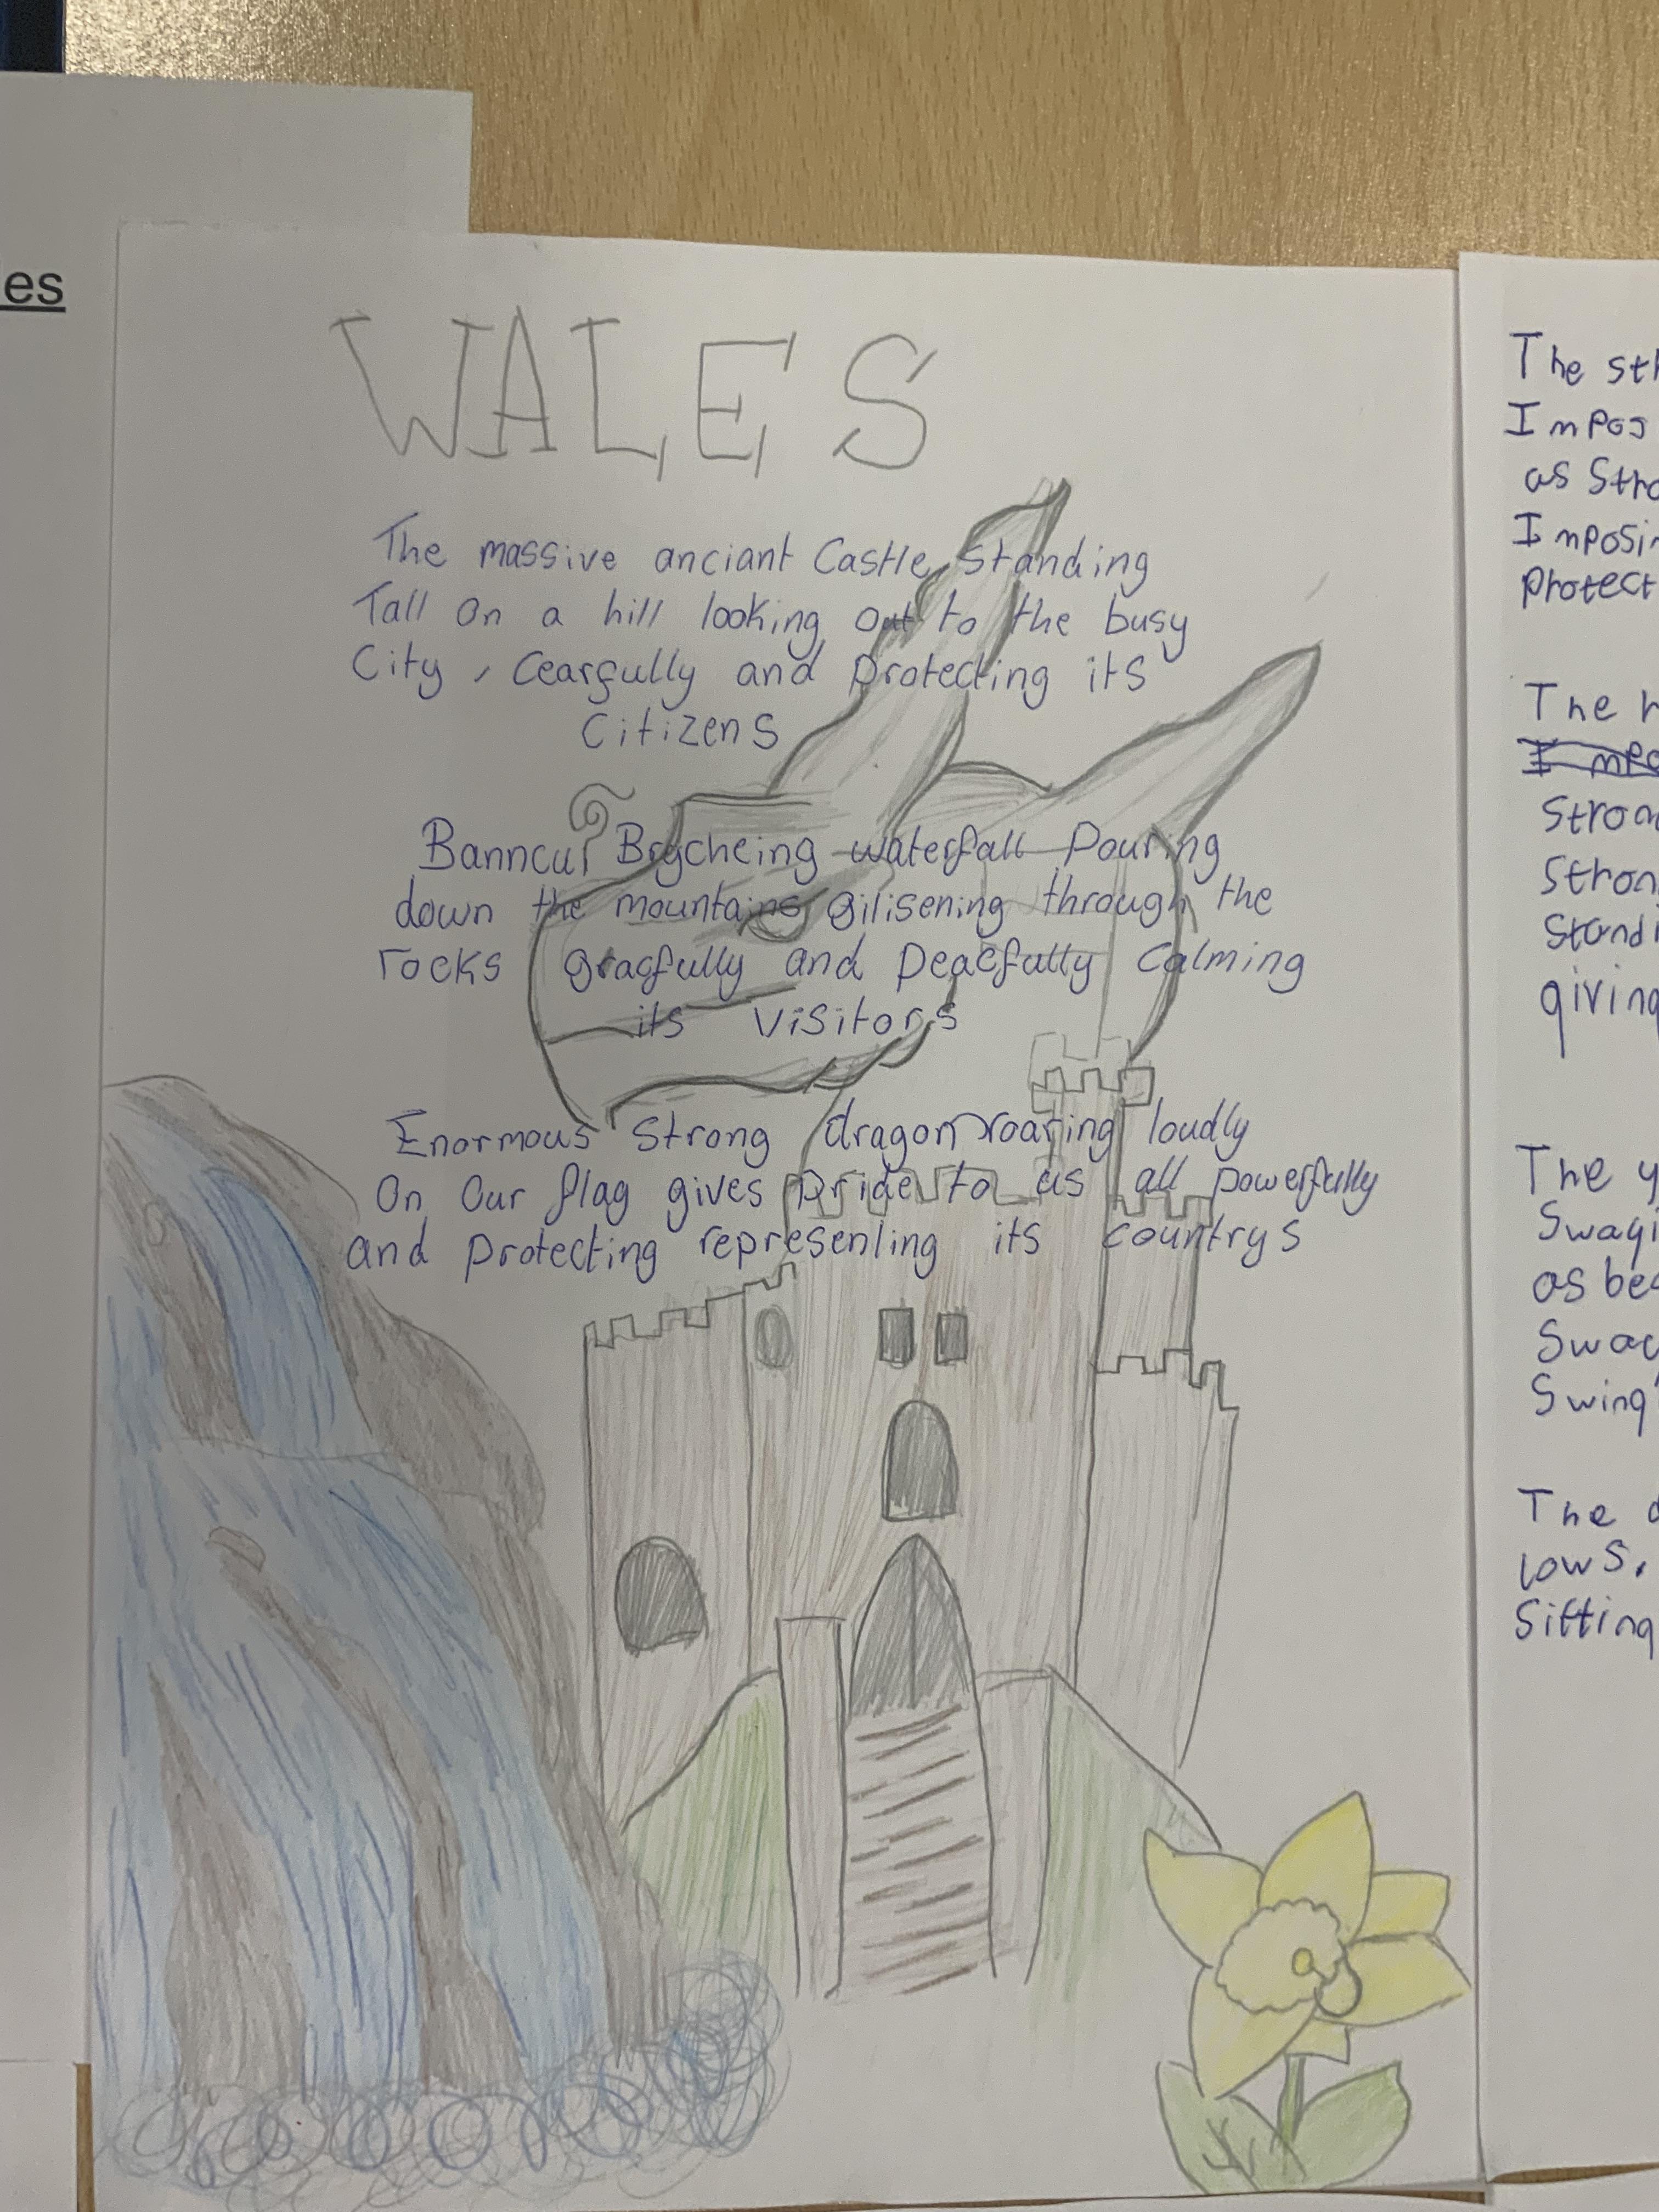 es
WALES
The massive anciant Castle Standing
Tall On a hill looking out to the busy
City, Cearfully and Protecting its
Citizens
Banncui Brycheing waterfall Pouring
down the mountains gilisening through the
rocks gracfully and peacefully Calming
its visitors
Enormous Strong dragon roaring loudly
On Our flag gives pride to us all powerfully
and protecting representing its countrys
The
Impos
as
Imposin
Protect
The

Strong
Standi
giving
The
Swayi
as
Sway
Swing
The
lows.
Sitting